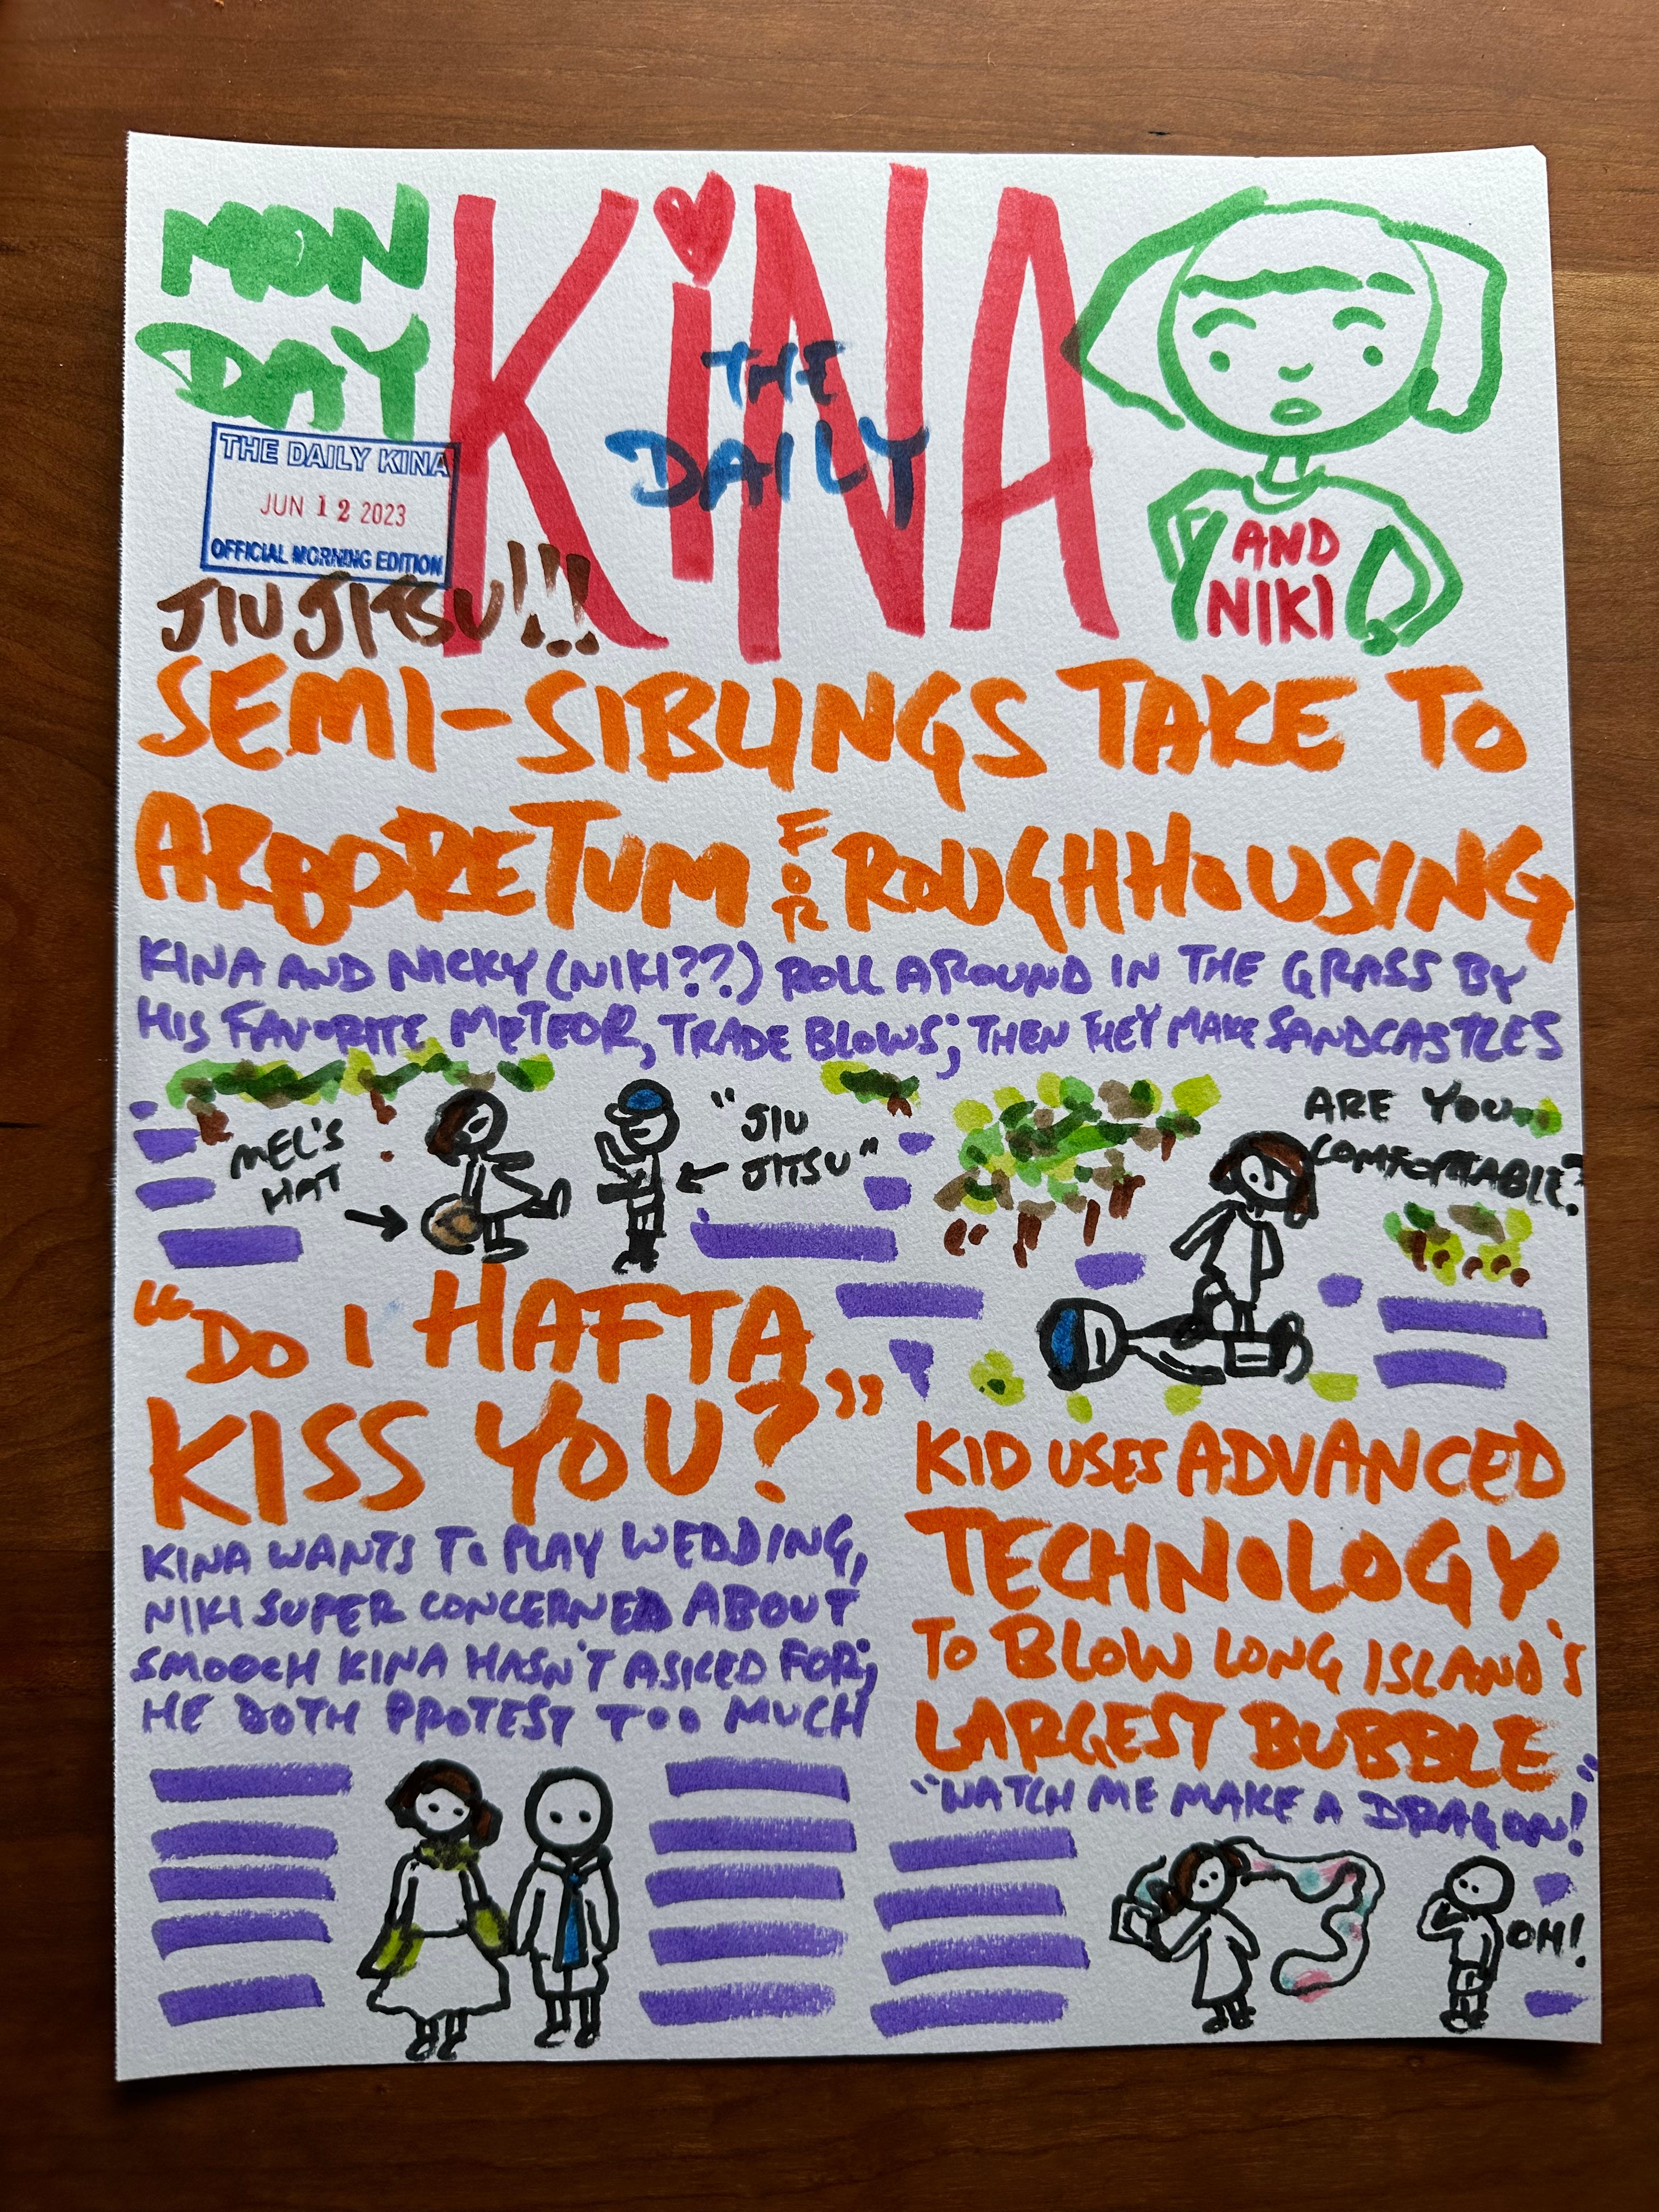 MON
DAY
THE DAILY KINA
JUN 12 2023
OFFICIAL MORNING EDITION
KiNA
THE
DAILY
AND
NIKI
JIU JITSU!!!
SEMI-SIBLINGS TAKE TO
ARBORETUM FOR ROUGHHOUSING
KINA AND NICKY (NIKI??) ROLL AROUND IN THE GRASS BY
HIS FAVORITE METEOR, TRADE BLOWS; THEN THEY MAKE SANDCASTLES
MEL'S
HAT
"JIU
JITSU"
ARE YOU
COMFORTABLE?
"DO I HAFTA
KISS YOU?"
KINA WANTS TO PLAY WEDDING,
NIKI SUPER CONCERNED ABOUT
SMOOCH KINA HASN'T ASKED FOR;
HE DOTH PROTEST TOO MUCH
KID USES ADVANCED
TECHNOLOGY
TO BLOW LONG ISLAND'S
LARGEST BUBBLE
"WATCH ME MAKE A DRAGON!"
OH!